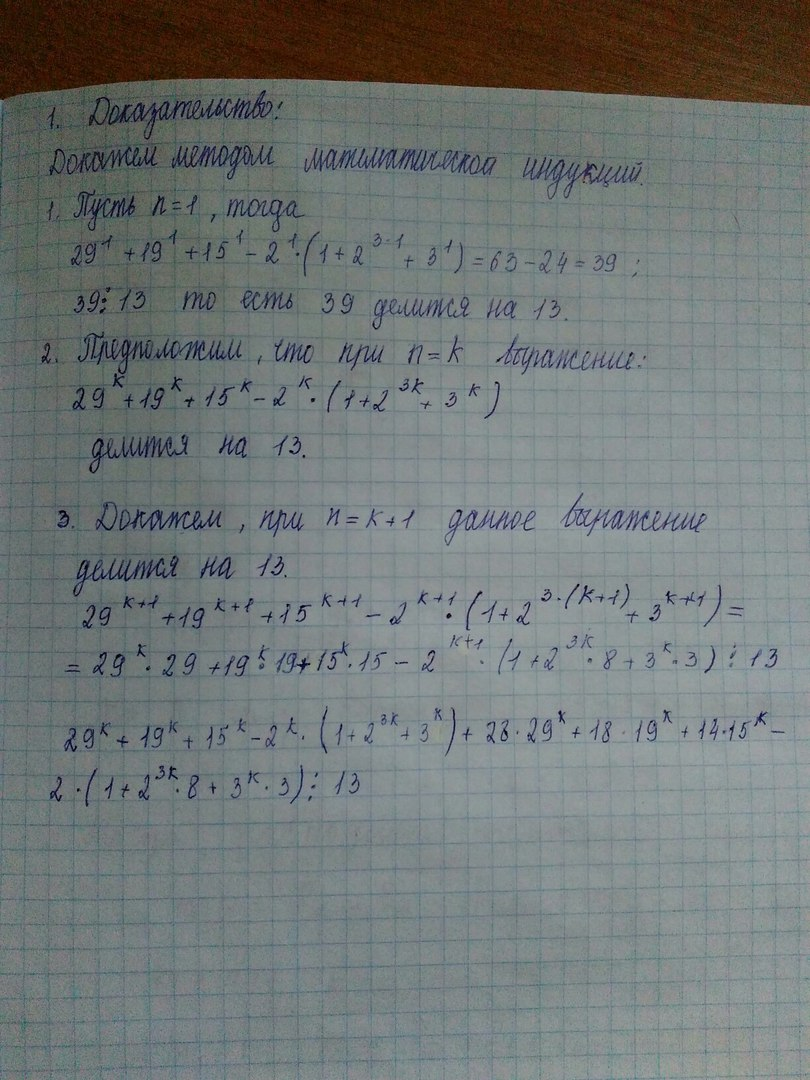 1. Доказательство:
Докажем методом математической индукций.
1. Пусть n=1, тогда
29¹ + 19¹ + 15¹ - 2¹·(1+2³·¹ + 3¹) = 63 - 24 = 39;
39⋮13 то есть 39 делится на 13.
2. Предположим, что при n=k выражение:
29ᵏ + 19ᵏ + 15ᵏ - 2ᵏ·(1+2³ᵏ + 3ᵏ)
делится на 13.
3. Докажем, при n=k+1 данное выражение
делится на 13.
29ᵏ⁺¹ + 19ᵏ⁺¹ + 15ᵏ⁺¹ - 2ᵏ⁺¹·(1+2³·⁽ᵏ⁺¹⁾ + 3ᵏ⁺¹) =
= 29ᵏ·29 + 19ᵏ·19 + 15ᵏ·15 - 2ᵏ⁺¹·(1+2³ᵏ·8 + 3ᵏ·3) ⋮ 13
29ᵏ + 19ᵏ + 15ᵏ - 2ᵏ·(1+2³ᵏ + 3ᵏ) + 28·29ᵏ + 18·19ᵏ + 14·15ᵏ -
2·(1+2³ᵏ·8 + 3ᵏ·3) ⋮ 13